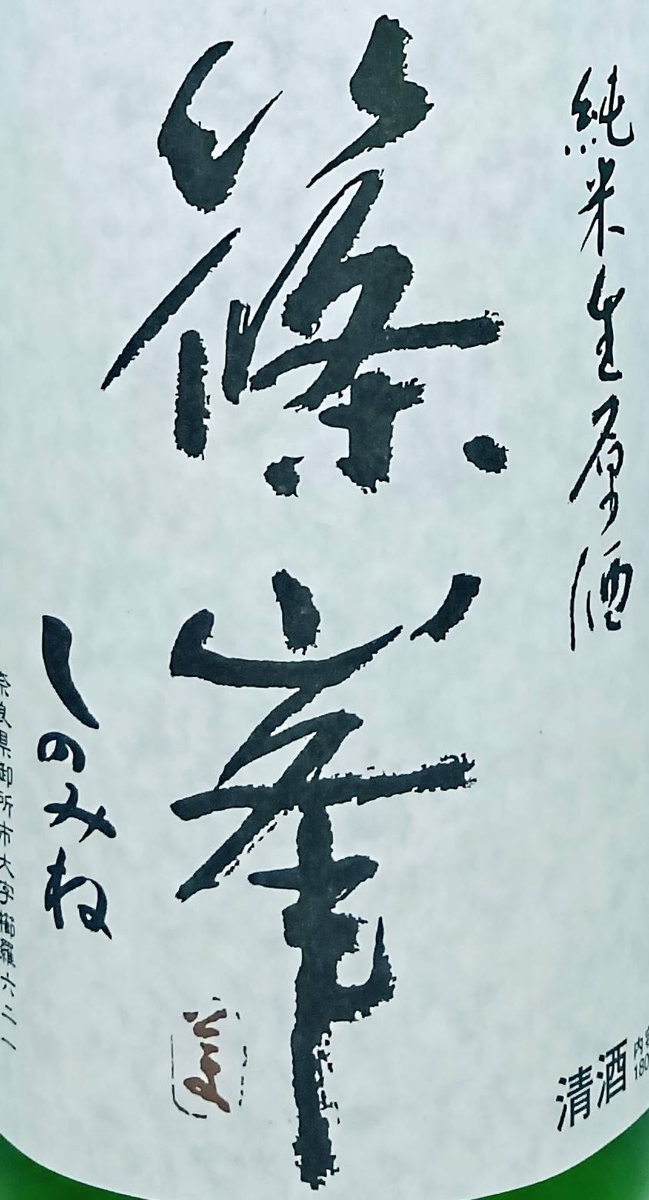 純米生原酒
篠峯
しのみね
奈良県御所市大字櫛羅六二一
清酒
内容
180